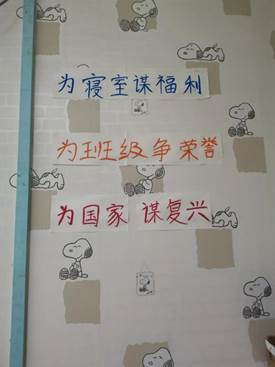 为寝室谋福利
为班级争荣誉
为国家 谋复兴